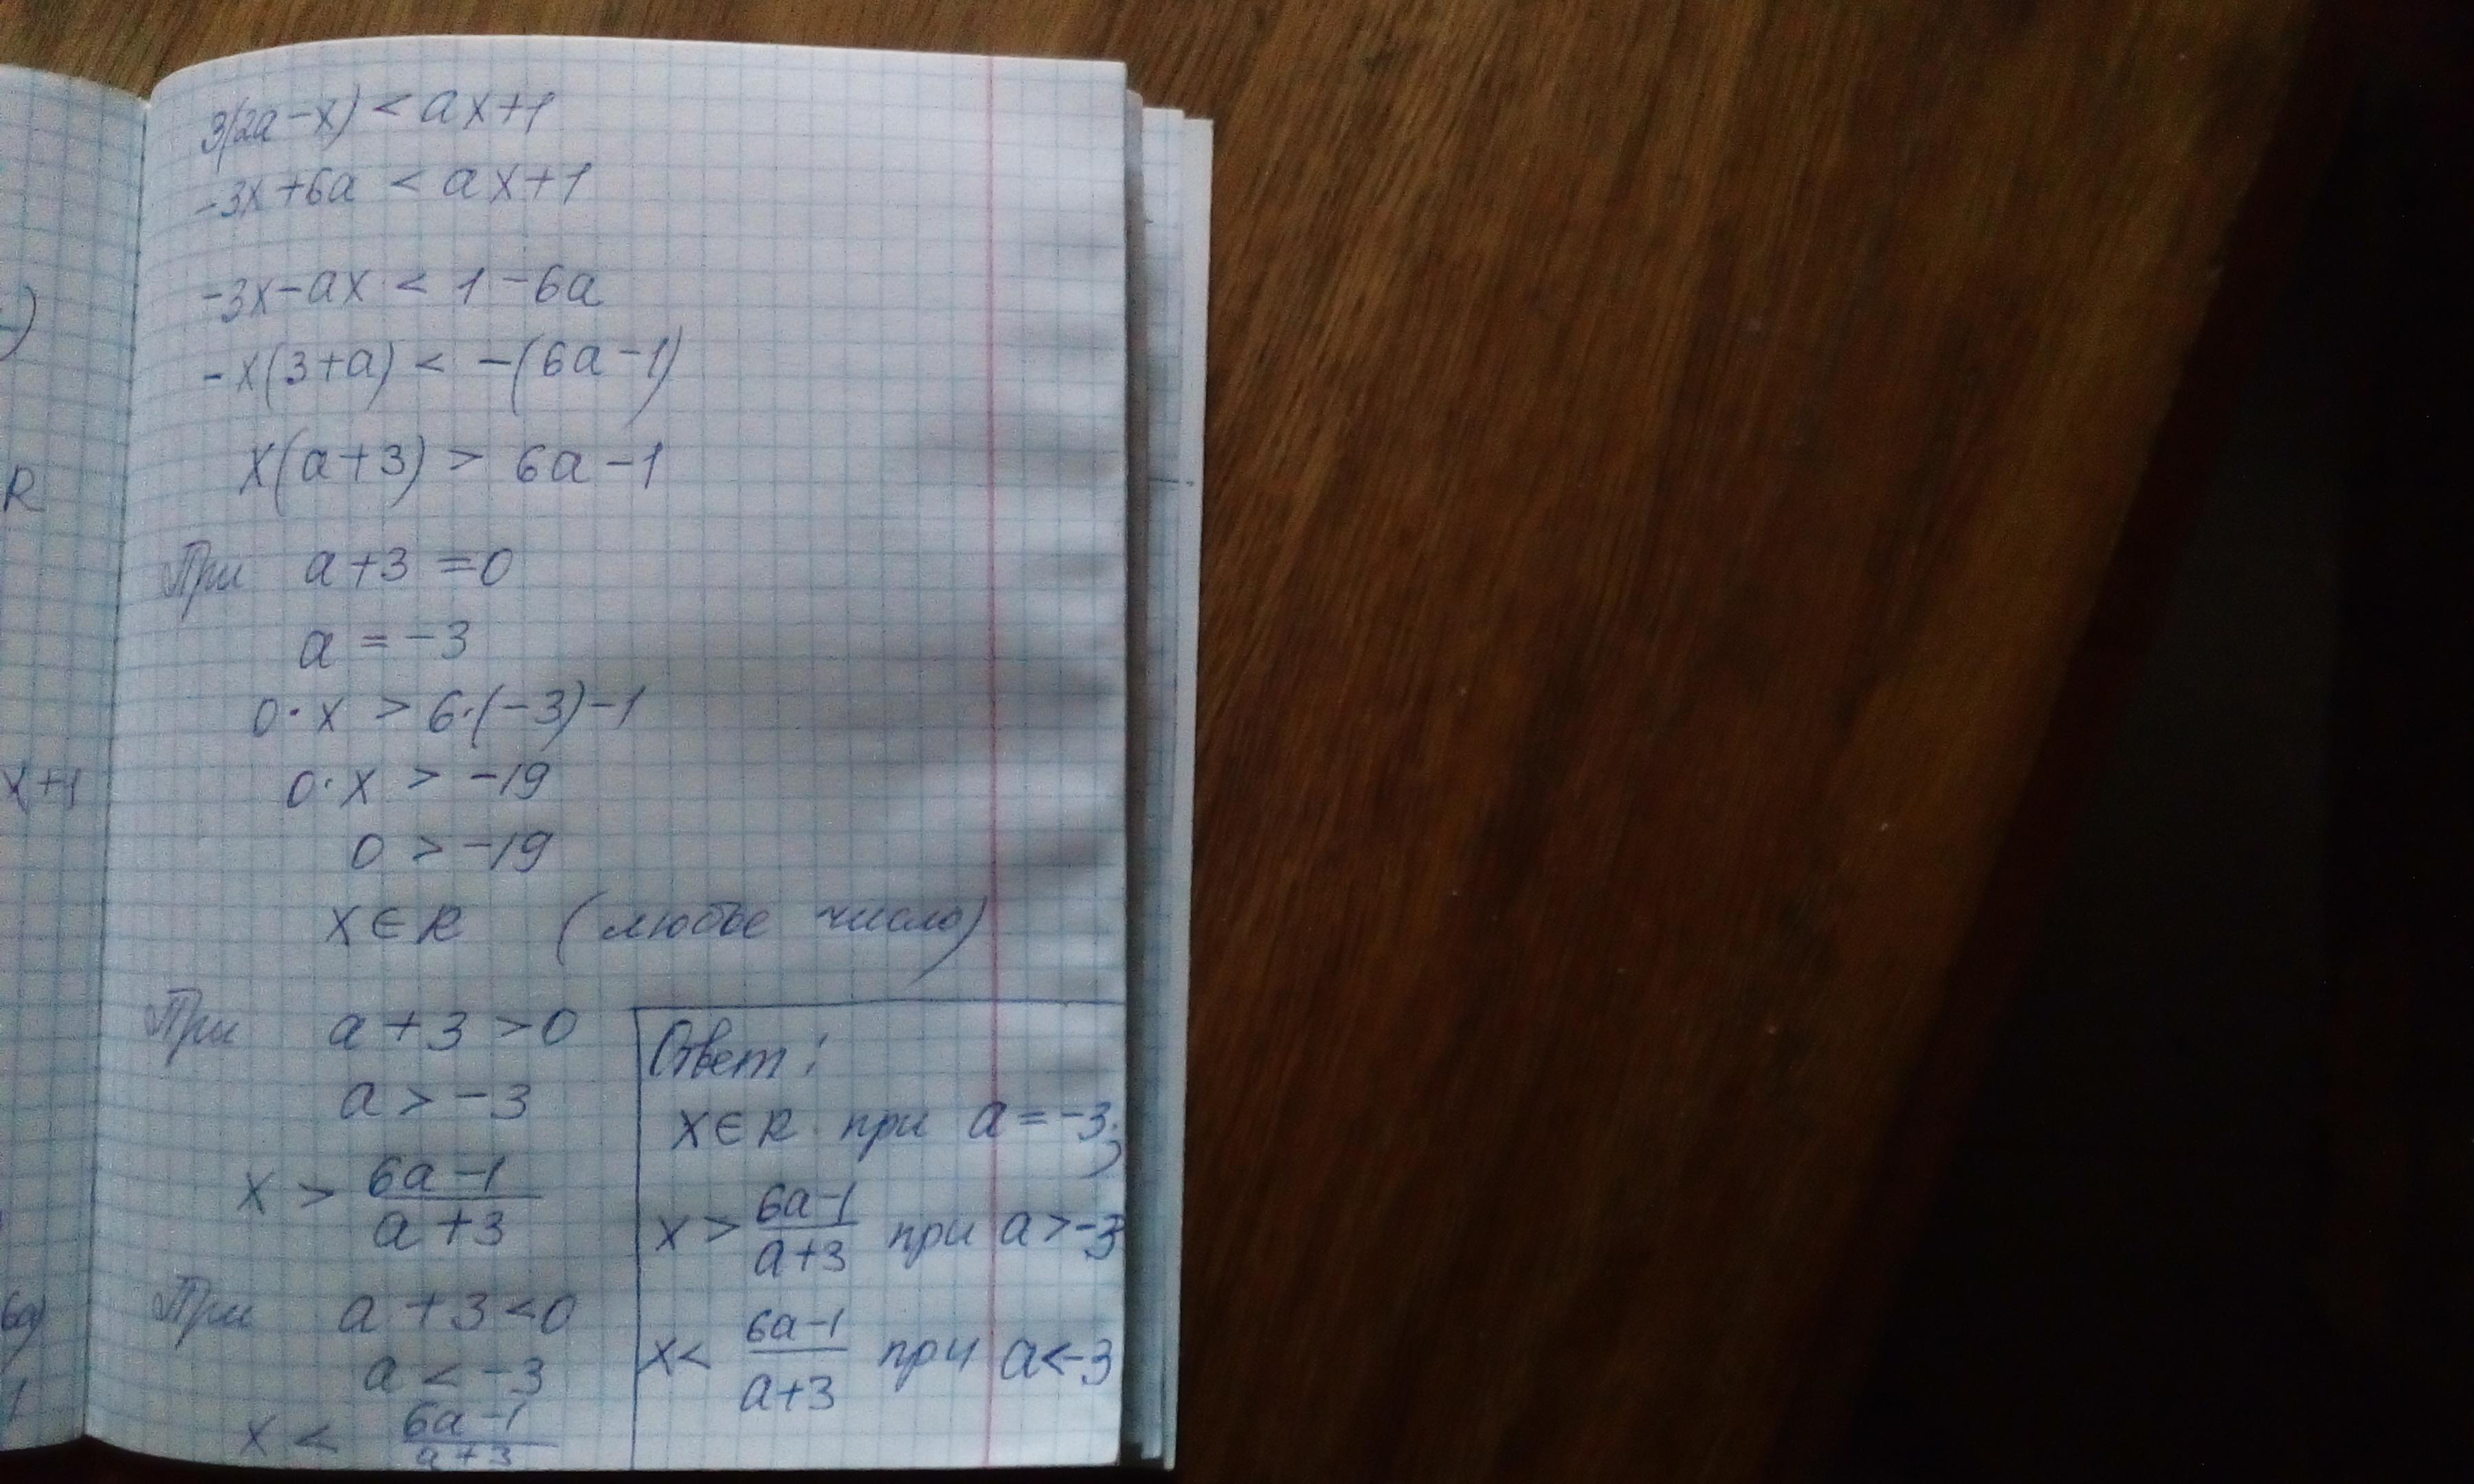 3(2a-x) < ax+1
-3x+6a < ax+1
-3x-ax < 1-6a
-x(3+a) < -(6a-1)
x(a+3) > 6a-1
При a+3=0
a = -3
0·x > 6·(-3)-1
0·x > -19
0 > -19
x∈R (любое число)
При a+3>0
a > -3
x > (6a-1)/(a+3)
При a+3<0
a < -3
x < (6a-1)/(a+3)
Ответ:
x∈R при a=-3;
x > (6a-1)/(a+3) при a>-3
x < (6a-1)/(a+3) при a<-3
)
R
x+1